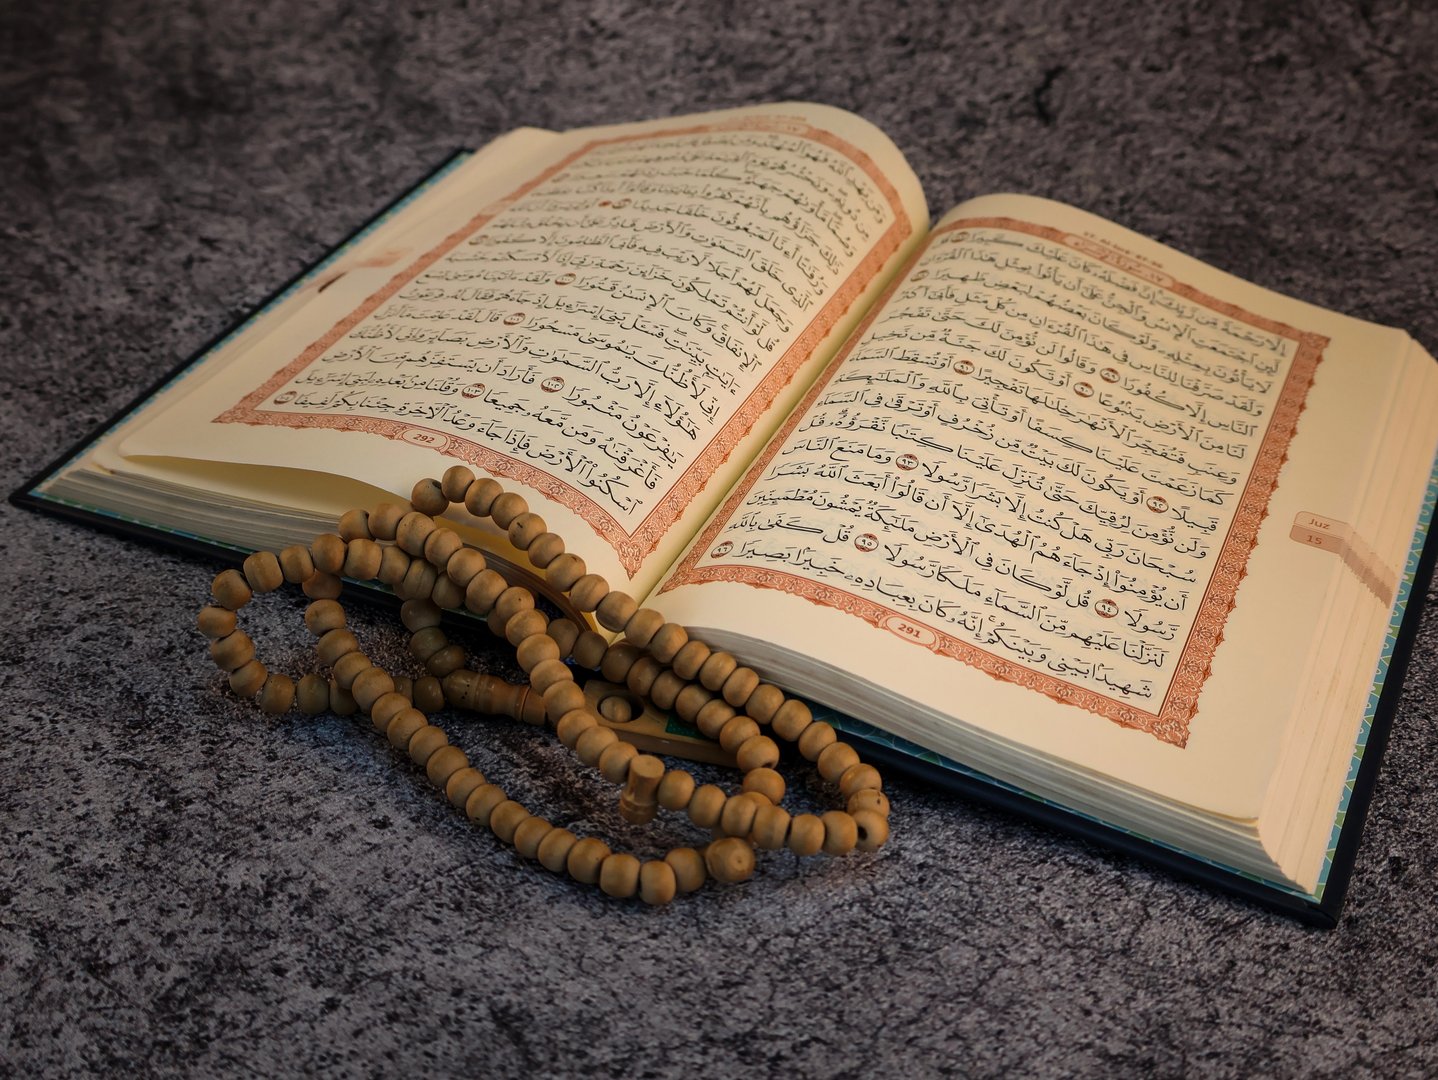 17. AL-ISRA' 87-96
إِلَّا رَحْمَةً مِّن رَّبِّكَ إِنَّ فَضْلَهُۥ كَانَ عَلَيْكَ كَبِيرًا ٨٧
لَّئِنِ ٱجْتَمَعَتِ ٱلْإِنسُ وَٱلْجِنُّ عَلَىٰٓ أَن يَأْتُوا۟ بِمِثْلِ هَٰذَا ٱلْقُرْءَانِ
لَا يَأْتُونَ بِمِثْلِهِۦ وَلَوْ كَانَ بَعْضُهُمْ لِبَعْضٍ ظَهِيرًا ٨٨
وَلَقَدْ صَرَّفْنَا لِلنَّاسِ فِى هَٰذَا ٱلْقُرْءَانِ مِن كُلِّ مَثَلٍ فَأَبَىٰٓ أَكْثَرُ
ٱلنَّاسِ إِلَّا كُفُورًا ٨٩ وَقَالُوا۟ لَن نُّؤْمِنَ لَكَ حَتَّىٰ تَفْجُرَ
لَنَا مِنَ ٱلْأَرْضِ يَنۢبُوعًا ٩٠ أَوْ تَكُونَ لَكَ جَنَّةٌ مِّن نَّخِيلٍ
وَعِنَبٍ فَتُفَجِّرَ ٱلْأَنْهَٰرَ خِلَٰلَهَا تَفْجِيرًا ٩١ أَوْ تُسْقِطَ ٱلسَّمَآءَ
كَمَا زَعَمْتَ عَلَيْنَا كِسَفًا أَوْ تَأْتِىَ بِٱللَّهِ وَٱلْمَلَٰٓئِكَةِ
قَبِيلًا ٩٢ أَوْ يَكُونَ لَكَ بَيْتٌ مِّن زُخْرُفٍ أَوْ تَرْقَىٰ فِى ٱلسَّمَآءِ
وَلَن نُّؤْمِنَ لِرُقِيِّكَ حَتَّىٰ تُنَزِّلَ عَلَيْنَا كِتَٰبًا نَّقْرَؤُهُۥ قُلْ
سُبْحَانَ رَبِّى هَلْ كُنتُ إِلَّا بَشَرًا رَّسُولًا ٩٣ وَمَا مَنَعَ ٱلنَّاسَ
أَن يُؤْمِنُوٓا۟ إِذْ جَآءَهُمُ ٱلْهُدَىٰٓ إِلَّآ أَن قَالُوٓا۟ أَبَعَثَ ٱللَّهُ بَشَرًا
رَّسُولًا ٩٤ قُل لَّوْ كَانَ فِى ٱلْأَرْضِ مَلَٰٓئِكَةٌ يَمْشُونَ مُطْمَئِنِّينَ
لَنَزَّلْنَا عَلَيْهِم مِّنَ ٱلسَّمَآءِ مَلَكًا رَّسُولًا ٩٥ قُلْ كَفَىٰ بِٱللَّهِ
شَهِيدًۢا بَيْنِى وَبَيْنَكُمْ إِنَّهُۥ كَانَ بِعِبَادِهِۦ خَبِيرًۢا بَصِيرًا ٩٦
291
Juz
15
وَمَن يَهْدِ ٱللَّهُ فَهُوَ ٱلْمُهْتَدِ
ذَٰلِكَ جَزَآؤُهُم بِأَنَّهُمْ كَفَرُوا۟ بِـَٔايَٰتِنَا وَقَالُوٓا۟ أَءِذَا كُنَّا عِظَٰمًا
وَرُفَٰتًا أَءِنَّا لَمَبْعُوثُونَ خَلْقًا جَدِيدًا ٩٨ أَوَلَمْ يَرَوْا۟ أَنَّ ٱللَّهَ
ٱلَّذِى خَلَقَ ٱلسَّمَٰوَٰتِ وَٱلْأَرْضَ قَادِرٌ عَلَىٰٓ أَن يَخْلُقَ مِثْلَهُمْ
وَجَعَلَ لَهُمْ أَجَلًا لَّا رَيْبَ فِيهِ فَأَبَى ٱلظَّٰلِمُونَ إِلَّا كُفُورًا ٩٩
قُل لَّوْ أَنتُمْ تَمْلِكُونَ خَزَآئِنَ رَحْمَةِ رَبِّىٓ إِذًا لَّأَمْسَكْتُمْ خَشْيَةَ
ٱلْإِنفَاقِ وَكَانَ ٱلْإِنسَٰنُ قَتُورًا ١٠٠ وَلَقَدْ ءَاتَيْنَا مُوسَىٰ تِسْعَ
ءَايَٰتٍۭ بَيِّنَٰتٍ فَسْـَٔلْ بَنِىٓ إِسْرَٰٓءِيلَ إِذْ جَآءَهُمْ فَقَالَ لَهُۥ فِرْعَوْنُ
إِنِّى لَأَظُنُّكَ يَٰمُوسَىٰ مَسْحُورًا ١٠١ قَالَ لَقَدْ عَلِمْتَ مَآ أَنزَلَ
هَٰٓؤُلَآءِ إِلَّا رَبُّ ٱلسَّمَٰوَٰتِ وَٱلْأَرْضِ بَصَآئِرَ وَإِنِّى لَأَظُنُّكَ
يَٰفِرْعَوْنُ مَثْبُورًا ١٠٢ فَأَرَادَ أَن يَسْتَفِزَّهُم مِّنَ ٱلْأَرْضِ
فَأَغْرَقْنَٰهُ وَمَن مَّعَهُۥ جَمِيعًا ١٠٣ وَقُلْنَا مِنۢ بَعْدِهِۦ لِبَنِىٓ إِسْرَٰٓءِيلَ
ٱسْكُنُوا۟ ٱلْأَرْضَ فَإِذَا جَآءَ وَعْدُ ٱلْءَاخِرَةِ جِئْنَا بِكُمْ لَفِيفًا ١٠٤
292